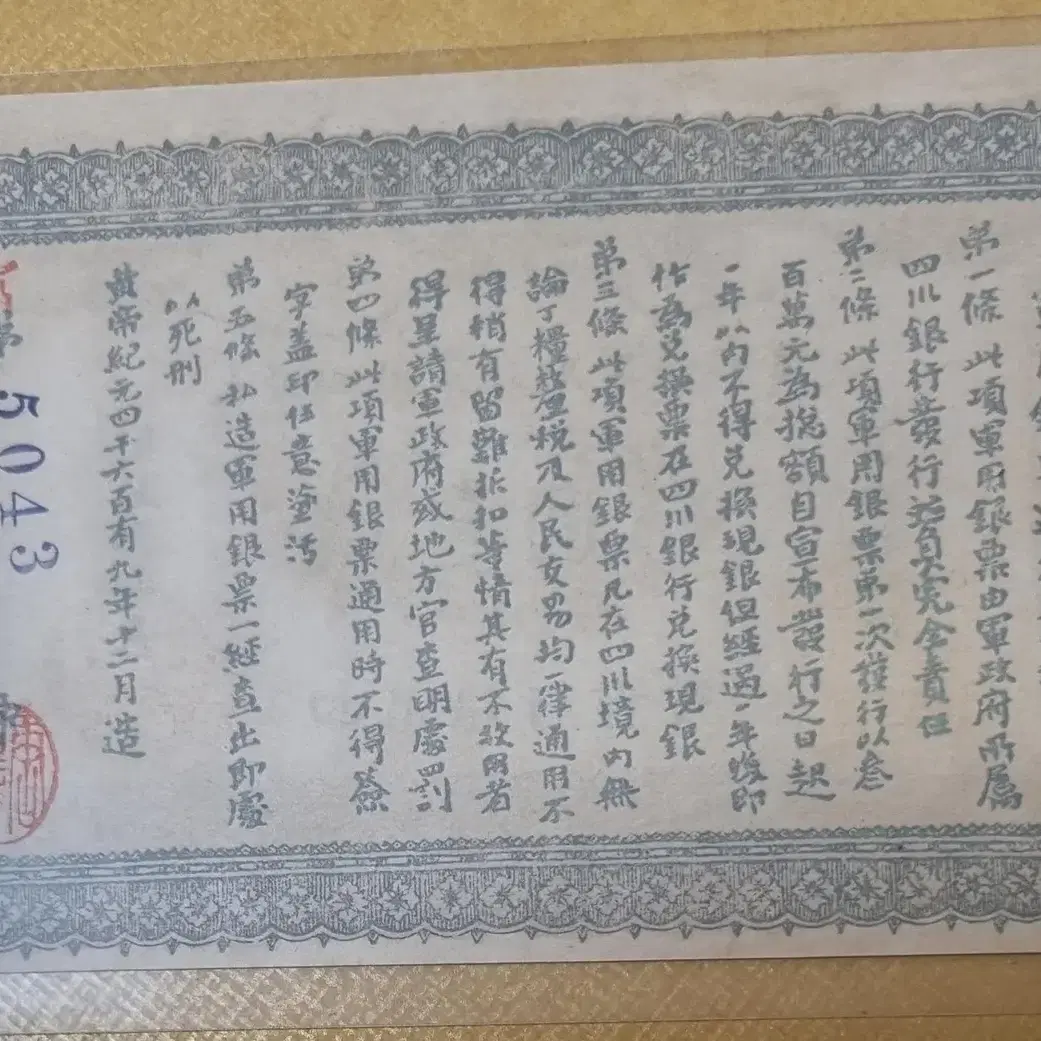 第一條 此項軍用銀票由軍政府所屬
四川銀行發行并負完全責任
第二條 此項軍用銀票第一次發行以叁
百萬元為總額自宣布發行之日起
一年以內不得兌換現銀但經過一年後即
作為兌換票在四川銀行兌換現銀
第三條 此項軍用銀票凡在四川境內無
論丁糧釐稅及人民交易均一律通用不
得稍有留難折扣等情其有不收用者
得呈請軍政府或地方官查明處罰
第四條 此項軍用銀票通用時不得簽
字盖印任意塗污
第五條 私造軍用銀票一經查出即處
以死刑
黃帝紀元四千六百有九年十二月造
第
5043